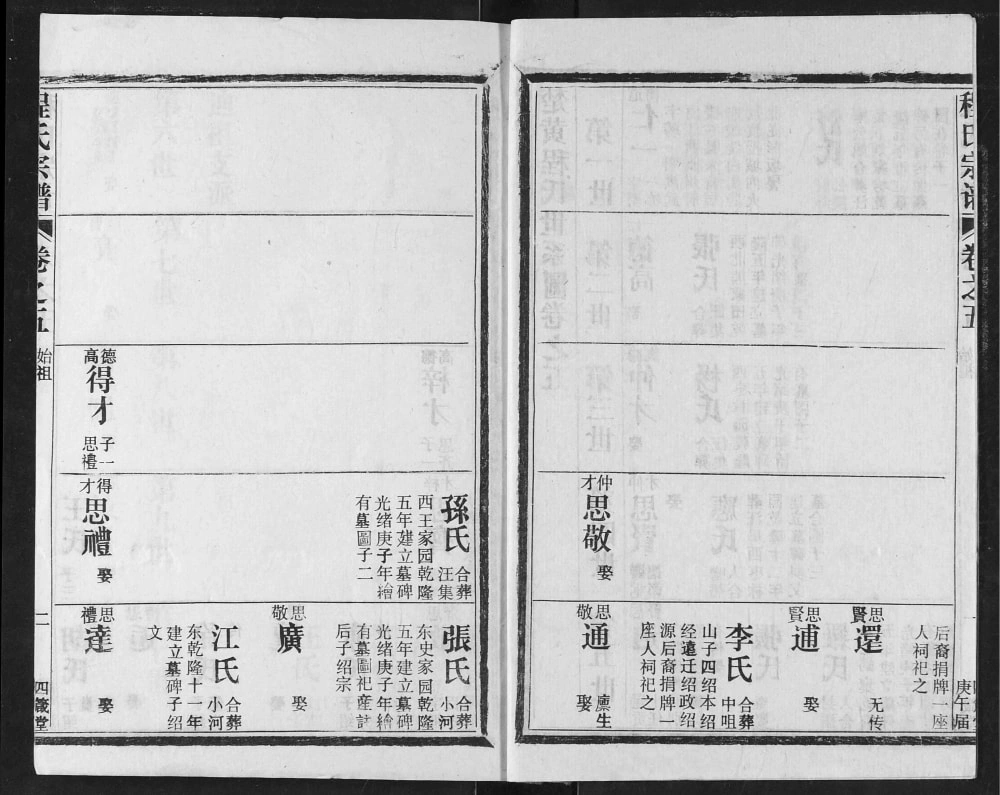 程氏宗谱
卷之五
始祖
一
庚午届
仲才
思敬
娶
后裔捐牌一座
人祠祀之
思賢
還
无传
思賢
逋
娶
李氏
合葬中咀
山子四绍本绍
经遠迁绍政绍
源后裔捐牌一
座人祠祀之
思敬
通
廪生
娶
德高
得才
子一
思禮
孫氏
合葬汪集
西王家园乾隆
五年建立墓碑
光绪庚子年繪
有墓圖子二
得才
思禮
娶
張氏
合葬小河
东史家园乾隆
五年建立墓碑
光绪庚子年繪
有墓圖祀产註
后子绍宗
思敬
廣
娶
江氏
合葬小河
东乾隆十一年
建立墓碑子绍
文
思禮
達
娶
程氏宗譜
卷之五
始祖
二
四箴堂